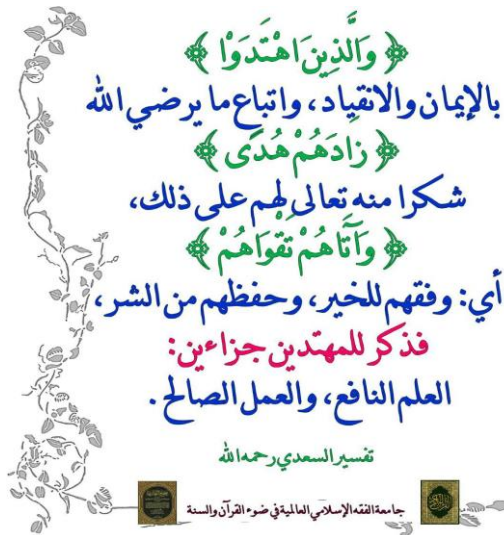 ﴿ وَالَّذِينَ اهْتَدَوْا ﴾
بالإيمان والانقياد، واتباع ما يرضي الله
﴿ زَادَهُمْ هُدًى ﴾
شكرا منه تعالى لهم على ذلك،
﴿ وَآتَاهُمْ تَقْوَاهُمْ ﴾
أي: وفقهم للخير، وحفظهم من الشر،
فذكر للمهتدين جزاءين:
العلم النافع، والعمل الصالح.
تفسير السعدي رحمه الله
جامعة الفقه الإسلامي العالمية في ضوء القرآن والسنة